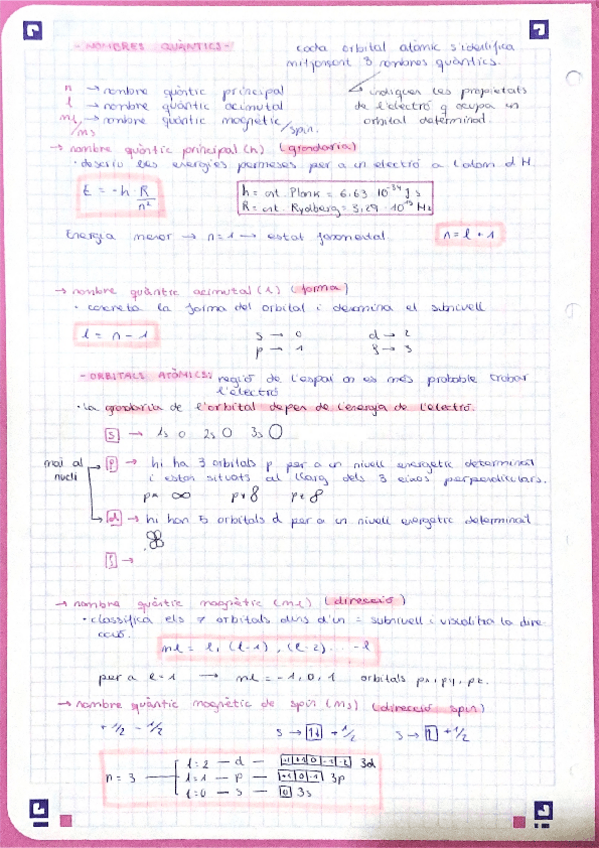 - NOMBRES QUÀNTICS -
cada orbital atòmic s'identifica
mitjançant 3 nombres quàntics.
n → nombre quòntic principal
l → nombre quàntic acimutal
ml/ms → nombre quàntic magnètic/spin.
indiquen les propietats
de l'electró q ocupa un
orbital determinat.
→ nombre quòntic principal (n) (grandària)
· descriu les energies permeses per a un electró a l'àtom d H.
E = -h · R/n²
h = ct. Plank = 6,63 · 10⁻³⁴ J s
R = ct. Rydberg = 3,29 · 10¹⁵ Hz
Energia menor → n=1 → estat fonamental
n = l + 1
→ nombre quàntic acimutal (l) (forma)
· concreta la forma del orbital i determina el subnivell
l = n - 1
s → 0 d → 2
p → 1 f → 3
- ORBITALS ATÒMICS: regió de l'espai on es més probable trobar
l'electró
· La grandària de l'orbital depen de l'energia de l'electró.
s → 1s 2s 3s
mai al
nucli
p → hi ha 3 orbitals p per a un nivell energètic determinat
i estan situats al llarg dels 3 eixos perpendiculars.
px py pz
d → hi han 5 orbitals d per a un nivell energetic determinat
f →
→ nombre quàntic magnètic (ml) (direcció)
· classifica els 7 orbitals dins d'un = subnivell i visualitza la dire-
cció.
ml = l, (l-1), (l-2) ... -l
per a l=1 → ml = -1, 0, 1 orbitals px, py, pz.
→ nombre quàntic magnètic de spin (ms) (direcció spin)
+1/2 - 1/2 s → 1↓ +1/2 s → 1 +1/2
n = 3
l=2 — d — 3d
l=1 — p — +1 0 -1 3p
l=0 — s — 0 3s